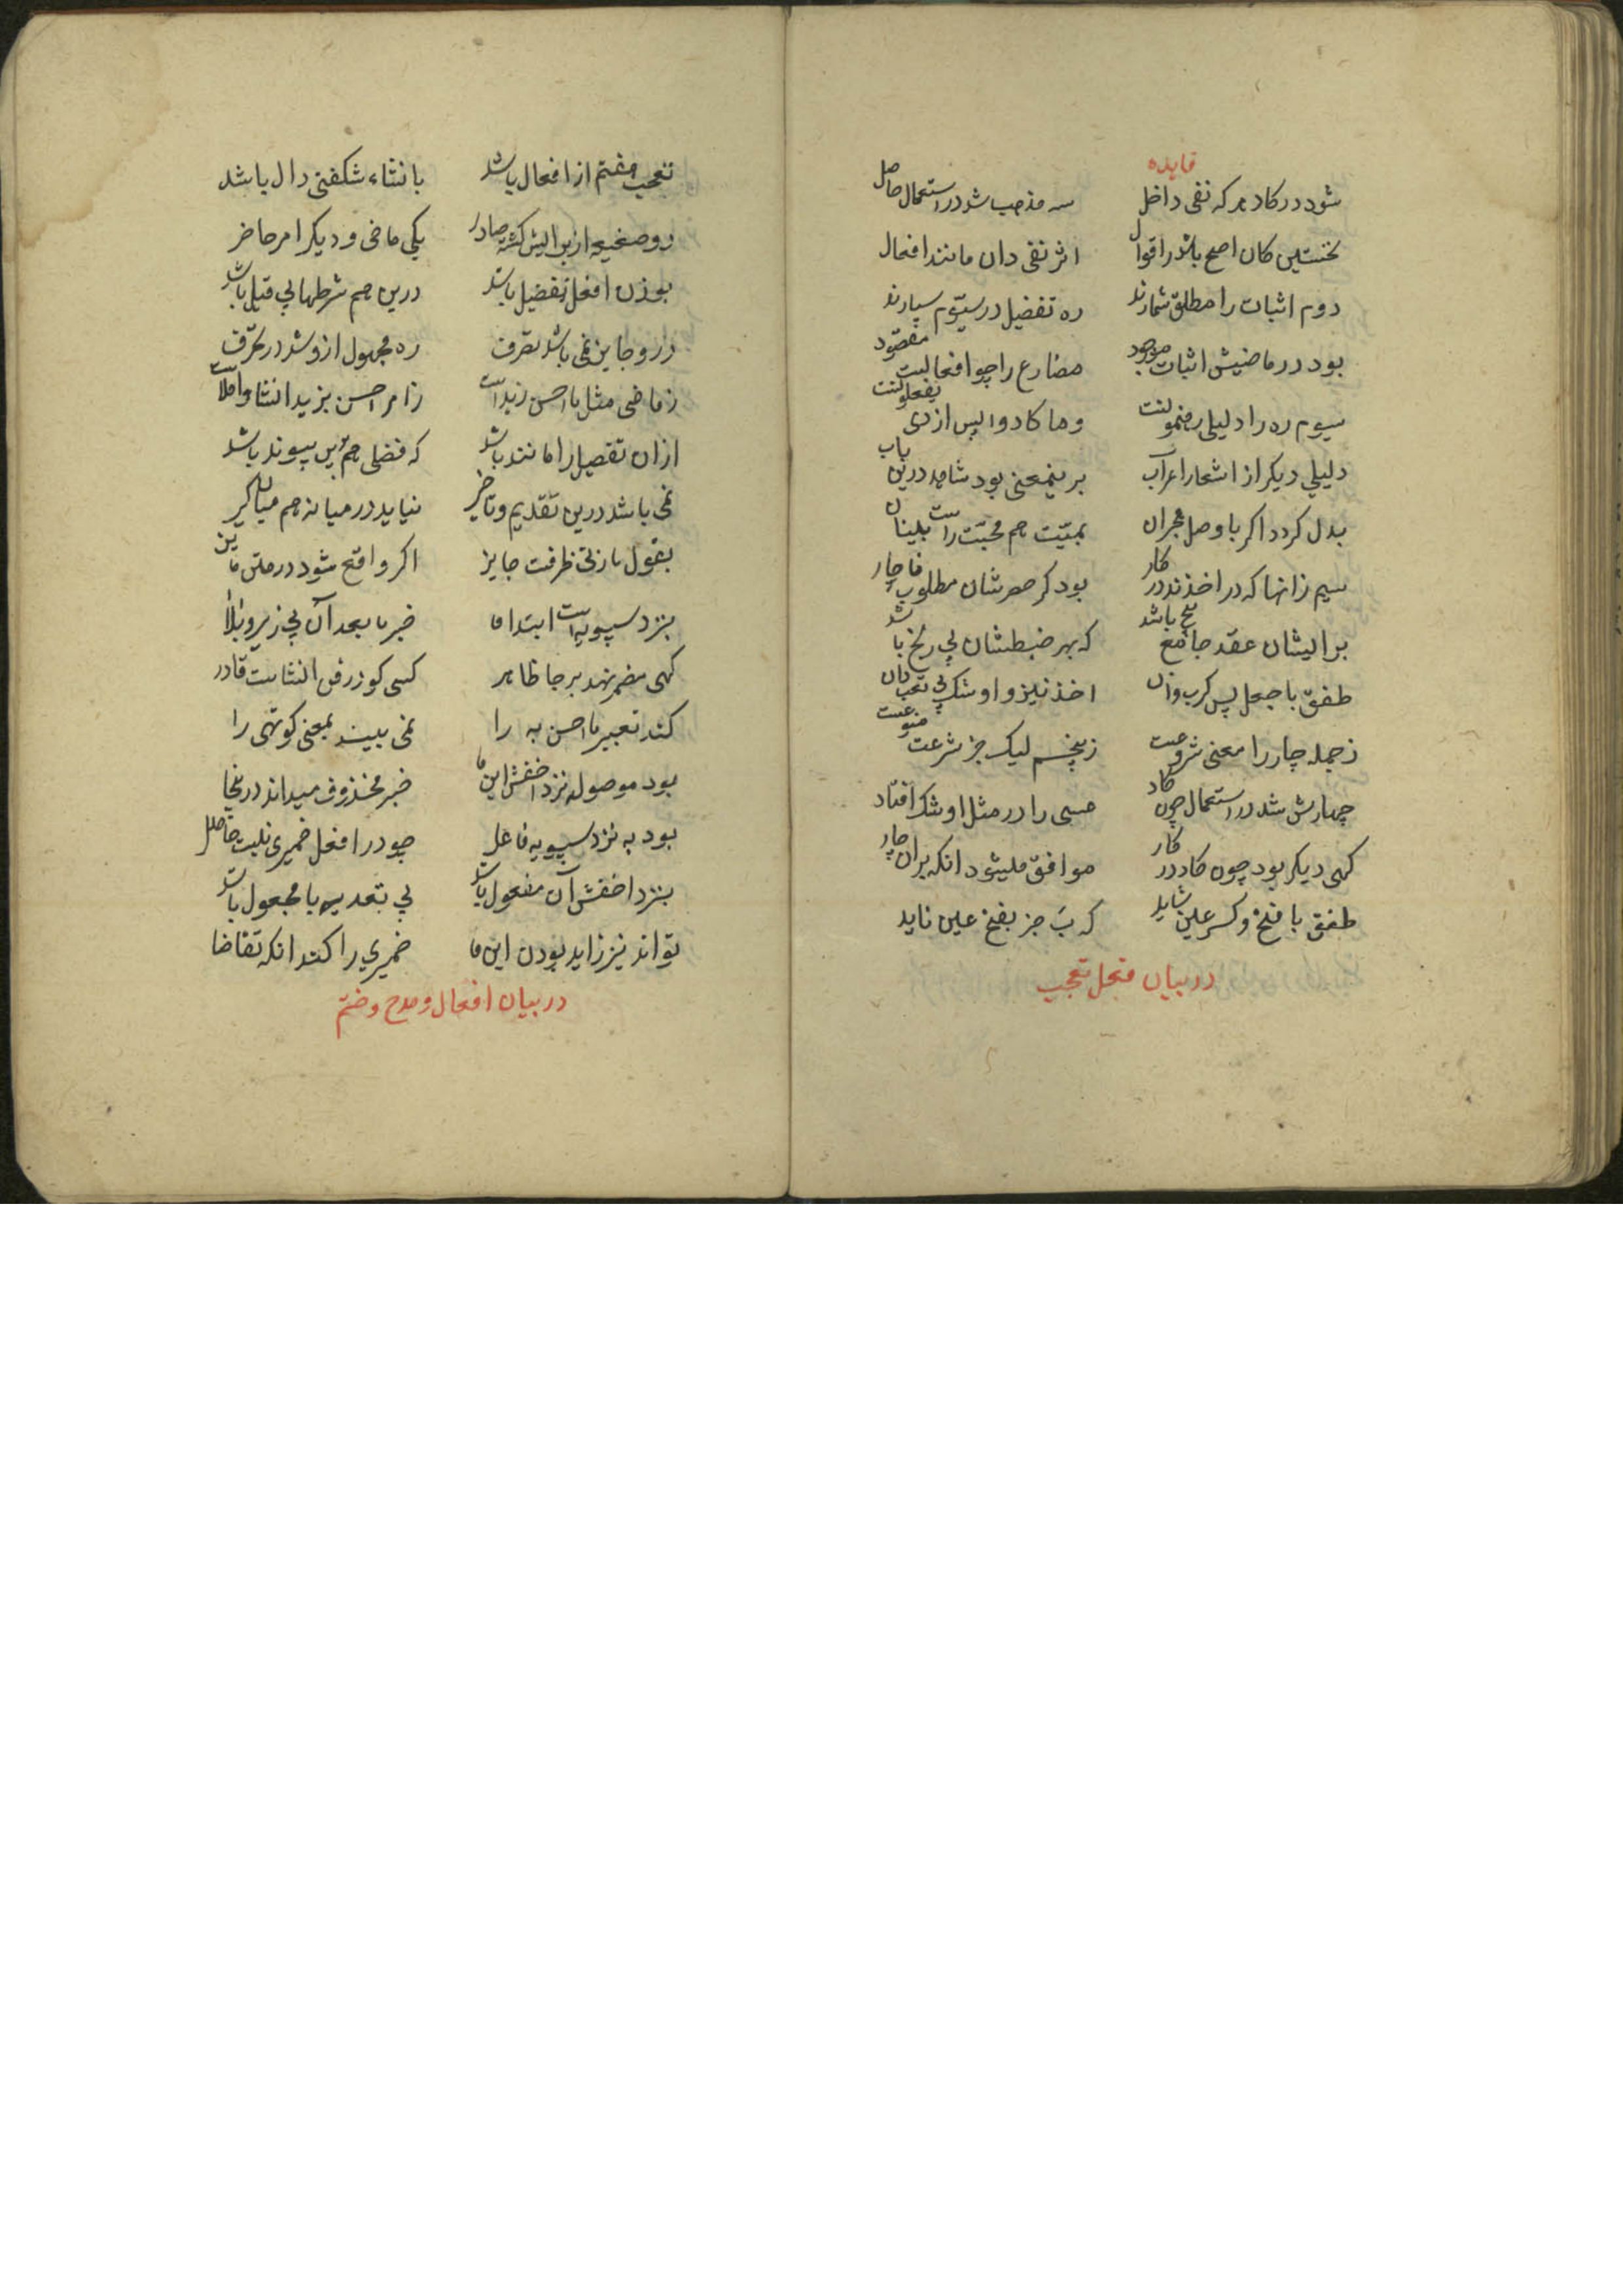 فایده
شود در کاد هر که نفی داخل سه مذهب شد در استعمال حاصل
نخستین کان اصح باشد در اقوال اثر نفی دان مانند افعال
دوم اثبات را مطلق شمارند ره تفضیل در سیّوم سپارند
بود در ماضیش اثبات موجود مضارع را چو افعالیست مقصود
سیوم ره را دلیلی رهنمونست وما کادوا پس از وی یفعلونست
دلیلی دیگر از اشعار اعراب برینمعنی بود شاهد درین باب
بدل کردد اکر با وصل هجران بمیّت هم محبّت راست
سیم زانها که در اخذند در کار بود کر حصرشان مطلوب فا چار
برایشان عقد جامع باشد که بهر ضبطشان بی رنج باشد
طفق با جعل پس کرب وان اخذ نیز و اوشک بی تعب دان
ز جمله چار را معنی شروعست ز پنجم لیک جز شرعت
چهارش شد در استعمال چون کاد عسی را در مثل اوشک افتاد
کهی دیکر بود چون کاد در کار موافق میشود انکه بران چار
طفق با فتح و کسر عین شاید که بَ جز بفتح عین ناید
در بیان فعل تعجب
تعجب هفتم از افعال باشد بانشاء شکفتی دال باشد
دو صیغه از برایش کشته صادر یکی ماضی و دیکر امر حاضر
بوزن افعل تفضیل باشد درین هم شرطها بی قیل باشد
درو جایز نمی باشد تصرف ره مجهول ازو شد در تحرّف
ز ماضی مثل ما احسن زیداست ز امر احسن بزید انشا و املاست
ازان تفصیل را مانند باشد که فضلی هم پیوند باشد
نمی باشد درین تقدیم و تاخیر نیاید در میانه هم میانکیر
بقول مازنی ظرفت جایز اکر واقع شود در متن مابین
بنزد سیبویه است ابتدا ما خبر ما بعد آن بی زیر و بالا
کهی مضمر نهد بر جا ظاهر کسی کو در فن انشاست قادر
کند تعبیر ما احسن به را نمی بیند بمعنی کوتهی را
بود موصوله نزد اخفش این ما خبر محذوف میداند درینجا
بود به نزد سیبویه فاعل چو در افعل ضمیری نیست حاصل
بنزد اخفش آن مفعول باشد پی تعدیه با مجعول باشد
تواند نیز زاید بودن این ما ضمیری را کند انکه تقاضا
در بیان افعال و مدح و ختم